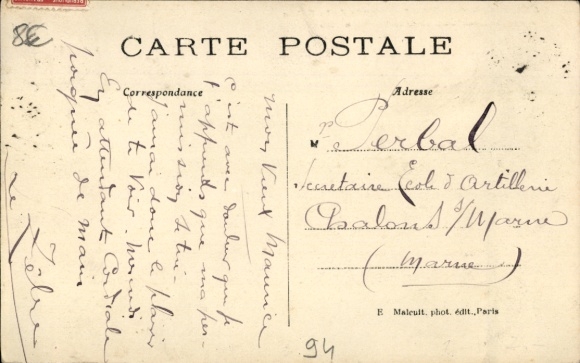 8€
CARTE POSTALE
Correspondance
Adresse
Mon Vieux Maurice
C'est avec douleur que je
t'apprends que ma per-
mission se tire
J'aurai donc le plaisir
de te voir
En attendant Cordiale
poignée de main
Le Zèbre
Mr Perbal
Secretaire Ecole d'Artillerie
Chalons s/Marne
(Marne)
E Malcuit. phot. édit., Paris
94